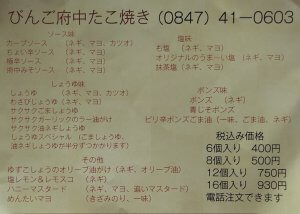 びんご府中たこ焼き (0847) 41-0603
ソース味
カープソース (ネギ、マヨ、カツオ)
ちょい辛ソース (ネギ、マヨ)
極辛ソース (ネギ、マヨ)
術中みそソース (ネギ、マヨ)
塩味
右塩 (ネギ、マヨ)
オリジナルのうまーい塩 (ネギ、マヨ)
抹茶塩 (ネギ、マヨ)
しょうゆ味
しょうゆ (ネギ、マヨ、カツオ)
わさびしょうゆ (ネギ、マヨ)
ごましょうゆ
サクサクガーリックのラー油がけ
サクサクしょうゆ (ネギ)
サクサク油ネギしょうゆ
しょうゆスペシャル (ごましょうゆ、
油ネギしょうゆが半分ずつかかります)
ポンズ味
ポンズ (ネギ)
青じそポンズ
ピリ辛ポンズごま油 (一味、ごま油、ネギ)
その他
ゆずこしょうのオリーブ油がけ (ネギ、オリーブ油)
塩レモン&レモスコ (ネギ)
ハニーマスタード (ネギ、マヨ、追いマスタード)
めんたいマヨ (きざみのり、一味)
税込み価格
6個入り 400円
8個入り 500円
12個入り 750円
16個入り 930円
電話注文できます